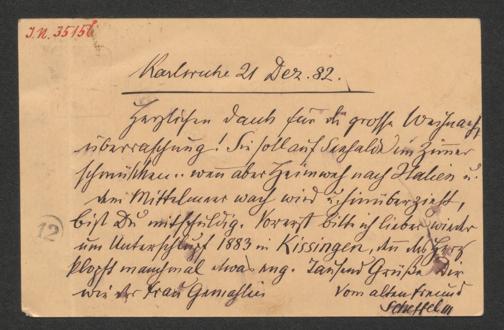 J.N. 35156
Karlsruhe 21 Dez. 82.
Herzlichen Dank für die grosse Weihnachts
überraschung! Sie soll auf Seehalde im Zimmer
schmücken.. wenn aber Heimweh nach Italien u.
dem Mittelmeer wach wird u. hinüberzieht,
bist Du mitschuldig. Vorerst bitte ich lieber wieder
um Unterschlupf 1883 in Kissingen, denn das Herz
klopft manchmal etwas eng. Tausend Grüße Dir
wie der Frau Gemahlin
vom alten Freund
Scheffel
12